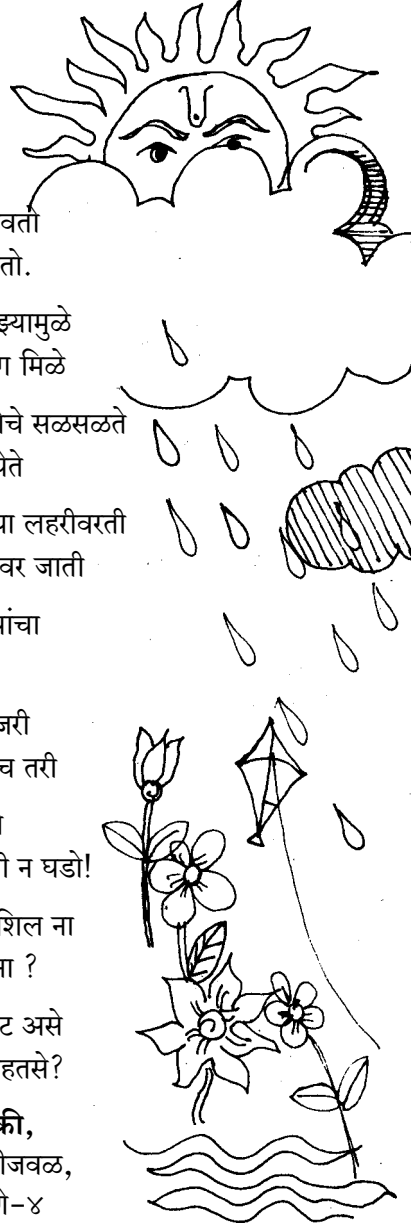 वतो
तो.
झ्यामुळे
ग मिळे
चे सळसळते
येते
या लहरीवरती
वर जाती
यांचा
जरी
च तरी
ी न घडो!
शिल ना
ना ?
ट असे
हतसे?
की,
ीजवळ,
णे-४